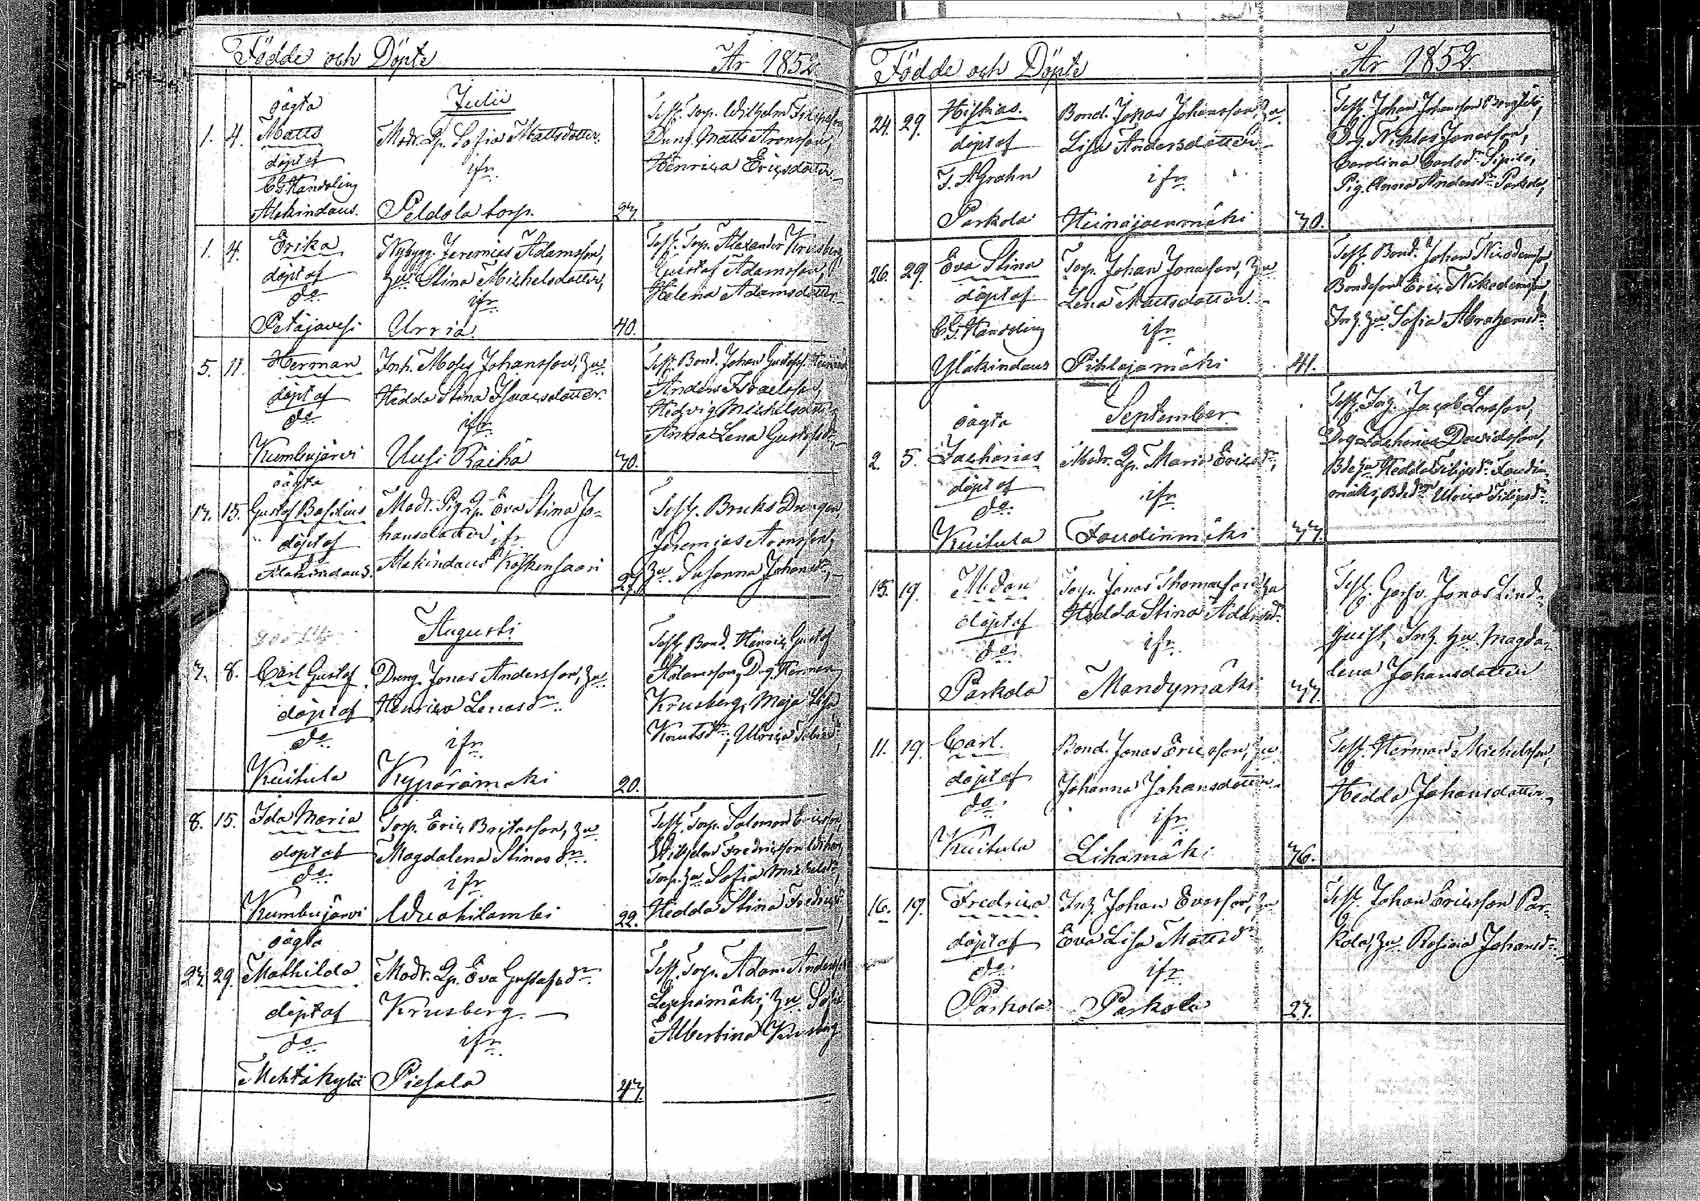 Födde och Döpte År 1852
Julii
oägta
1. 4. Matts
döpt af
C G Handling
Alakindaus.
Modr. Qp. Sofia Mattsdotter.
ifr.
Peldola torp.
27.
Test. Torp. Wilhelm
Dreng. Matts Aronsson,
Henrica Ericsdotter.
1. 4. Erika
döpt af
do
Petäjävesi
Nybygg. Jeremias Adamsson,
hu Stina Michelsdotter,
ifr.
Urria.
40.
Test. Torp. Alexander Krusberg,
Gustaf Adamsson,
Helena Adamsdotter.
5. 11. Herman
döpt af
do
Kumbujärvi
Inh. Moses Johansson, hu.
Hedda Stina Isacsdotter.
ifr.
Uusi Raiha
30.
Test. Bond. Johan Gustafs.
Anders Israelsson,
Hedvig Michelsdotter,
Anna Lena Gustafsdr.
oägta
12. 15. Gustaf Basilius
döpt af
Alakindaus.
Modr. Pig. Qp. Eva Stina Jo-
hansdotter ifr.
Alakindaus Koskensaari
27.
Test. Bruks Drengen
Jeremias Aronsson,
hu. Susanna Johansdr.
Augusti
7. 8. Carl Gustaf
döpt af
do
Kuitula
Dreng. Jonas Andersson, hu.
Henrica Lenasdr.
ifr.
Kypärämäki
20.
Test. Bond. Henric Gustaf
Adamsson, Drg. Herman
Krusberg, Maja Lisa
Knutsdr, Ulrica
8. 15. Ida Maria
döpt af
do
Kumbujärvi
Torp. Eric Britasson, hu
Magdalena Stinasdr.
ifr
Vuohilambi
22.
Test. Torp. Salomon Ericsson,
Wilhelm Fredricsson
Torp. hu Sofia Michelsdr,
Hedda Stina Fredricsdr
oägta
27. 29. Mathilda.
döpt af
do
Mehtäkylä
Modr. Qp. Eva Gustafsdr
Krusberg.
ifr.
Piesala
47.
Test. Torp. Adam Andersson
Leppämäki, hu Sofia
Albertina Krusberg
Födde och Döpte År 1852
24. 29. Hiskias.
döpt af
J. A Grahn
Parkola
Bond. Jonas Johansson, hu
Lisa Andersdotter
ifr
Heinäjoenmäki
30.
Test. Johan Johansson
Drg. Niklas Jonasson,
Carolina Carlsdr Sipilä,
Pig. Anna Andersdr Parkola,
26. 29. Eva Stina
döpt af
C G Handling
Yläkindaus
Torp. Johan Jonasson, hu
Lena Mattsdotter.
ifr
Pihlajamäki
41.
Test. Bond. Johan Nicodemson,
Bondeson Eric Nikodemson,
Inh. hu Sofia Abrahamsdr
September
oägta
2. 5. Zacharias
döpt af
do.
Kuitula
Modr. Qp. Maria Ericsdr,
ifr
Soudinmäki
37.
Test. Torp. Jacob Larsson,
Drg. Zacharias Davidsson,
Bde hu Hedda Filipsdr Soudin-
mäki, Bdedr Ulrica Filipsdr
15. 19. Aldan
döpt af
do
Parkola
Torp. Jonas Thomasson hu
Hedda Stina Adamsdr.
ifr.
Mandymäki
37.
Test. Jonas Lind-
quist, Inh. hu Magda-
lena Johansdotter
11. 19. Carl.
döpt af
do.
Kuitula
Bond. Jonas Ericsson, hu
Johanna Johansdotter
ifr
Lihamäki
36.
Test. Herman Michelsson,
Hedda Johansdotter.
16. 19. Fredrica
döpt af
do.
Parkola
Inh. Johan Evasson, hu
Eva Lisa Mattsdr
ifr
Parkola
27.
Test. Johan Ericsson Par-
kola, hu Rosina Johansdr.